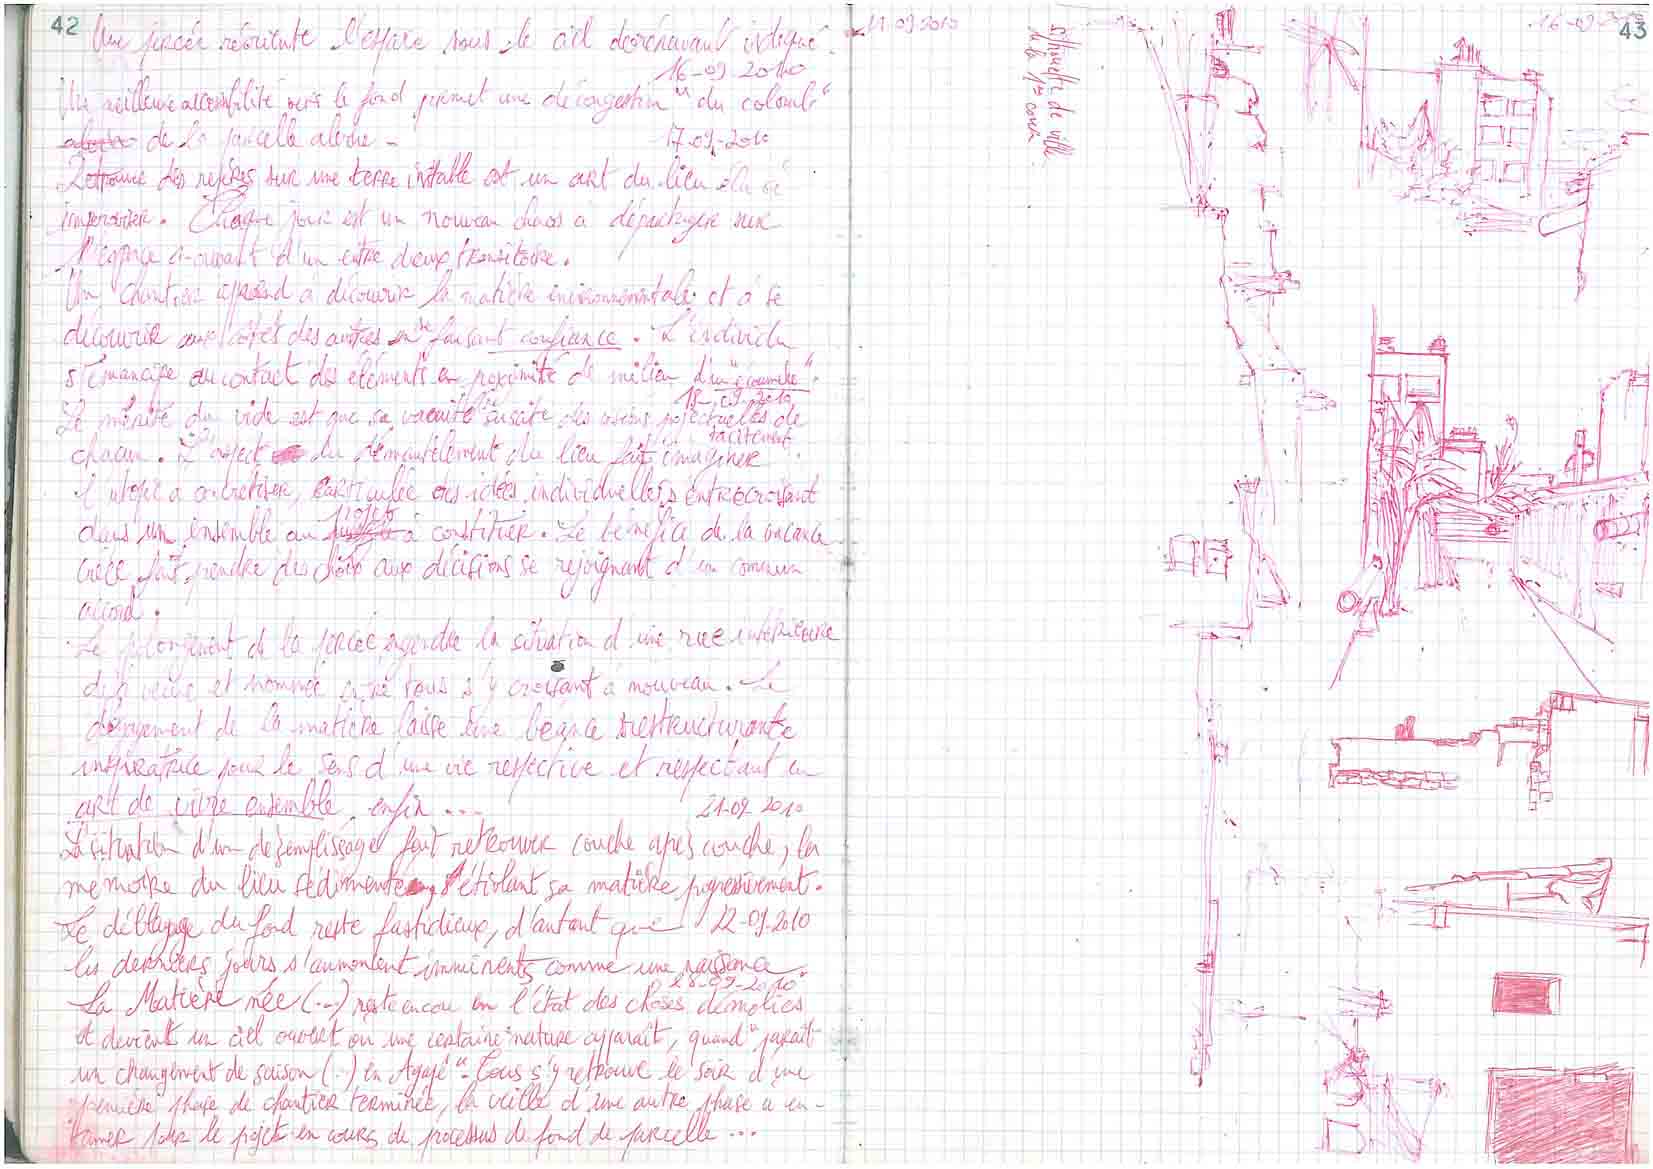 42
Une percée réoriente l'espace sous le ciel dorénavant indiqué.
16-09-2010
Une meilleure accessibilité vers le fond permet une décongestion "du colomb"
de la parcelle alerie -
17-09-2010
Retrouver des repères sur une terre instable est un art du lieu
improviser. Chaque jour est un nouveau chaos à départager sur
l'espace d'un entre deux transitoire.
Un chantier apprend à découvrir la matière environnementale et à se
découvrir aux côtés des autres en se faisant confiance. L'individu
s'émancipe au contact des éléments en proximité de milieu d'un "écoumène".
18-09-2010
Le mérite du vide est que sa vacuité suscite des visions de
chacun. L'aspect du démantèlement du lieu fait tacitement imaginer
l'utopie à concrétiser, articulée des idées individuelles entrecroisant
dans un ensemble au à constituer. Le bénéfice de la vacance
créée fait prendre des choix aux décisions se rejoignant d'un commun
accord.
Le prolongement de la percée engendre la situation d'une rue intérieure
déjà vécue et nommée entre tous s'y croisant à nouveau. Le
dégagement de la matière laisse une béance restructurante
inspiratrice pour le sens d'une vie respective et respectant un
art de vivre ensemble enfin ...
21-09-2010
La situation d'un désemplissage fait retrouver couche après couche, la
mémoire du lieu sédimenté s'étiolant sa matière progressivement.
Le déblayage du fond reste fastidieux, d'autant que
22-09-2010
les derniers jours s'annoncent imminents comme une naissance.
28-09-2010
La Matière née (...) reste encore en l'état des choses démolies
et devient un ciel ouvert ou une certaine nature apparaît, quand "paraît
un changement de saison (..) en Agapé". Tous s'y retrouve le soir d'une
première phase de chantier terminée, la veille d'une autre phase à en-
tamer pour le projet en cours de processus de fond de parcelle ...
11-09-2010
Silhouette de ville
de la 1re cour
16-09-2010
43